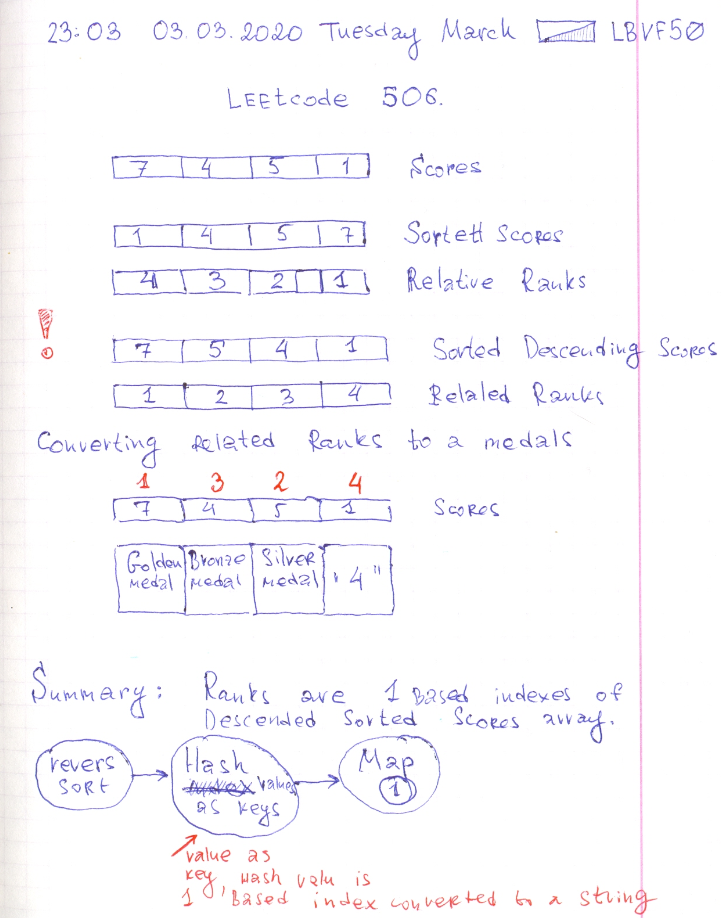 23:03 03.03.2020 Tuesday March LBVF50
LEEtcode 506.
7 4 5 1 Scores
1 4 5 7 Sortett Scores
4 3 2 1 Relative Ranks
!
7 5 4 1 Sorted Descending Scores
1 2 3 4 Relaled Ranks
Converting Related Ranks to a medals
1 3 2 4
7 4 5 1 Scores
Golden Bronze Silver
medal medal medal "4"
Summary: Ranks are 1 Based indexes of
Descended Sorted Scores array.
revers Hash Map
SORT values 1
as keys
value as
key, Hash valu is
1 Based index converted to a string